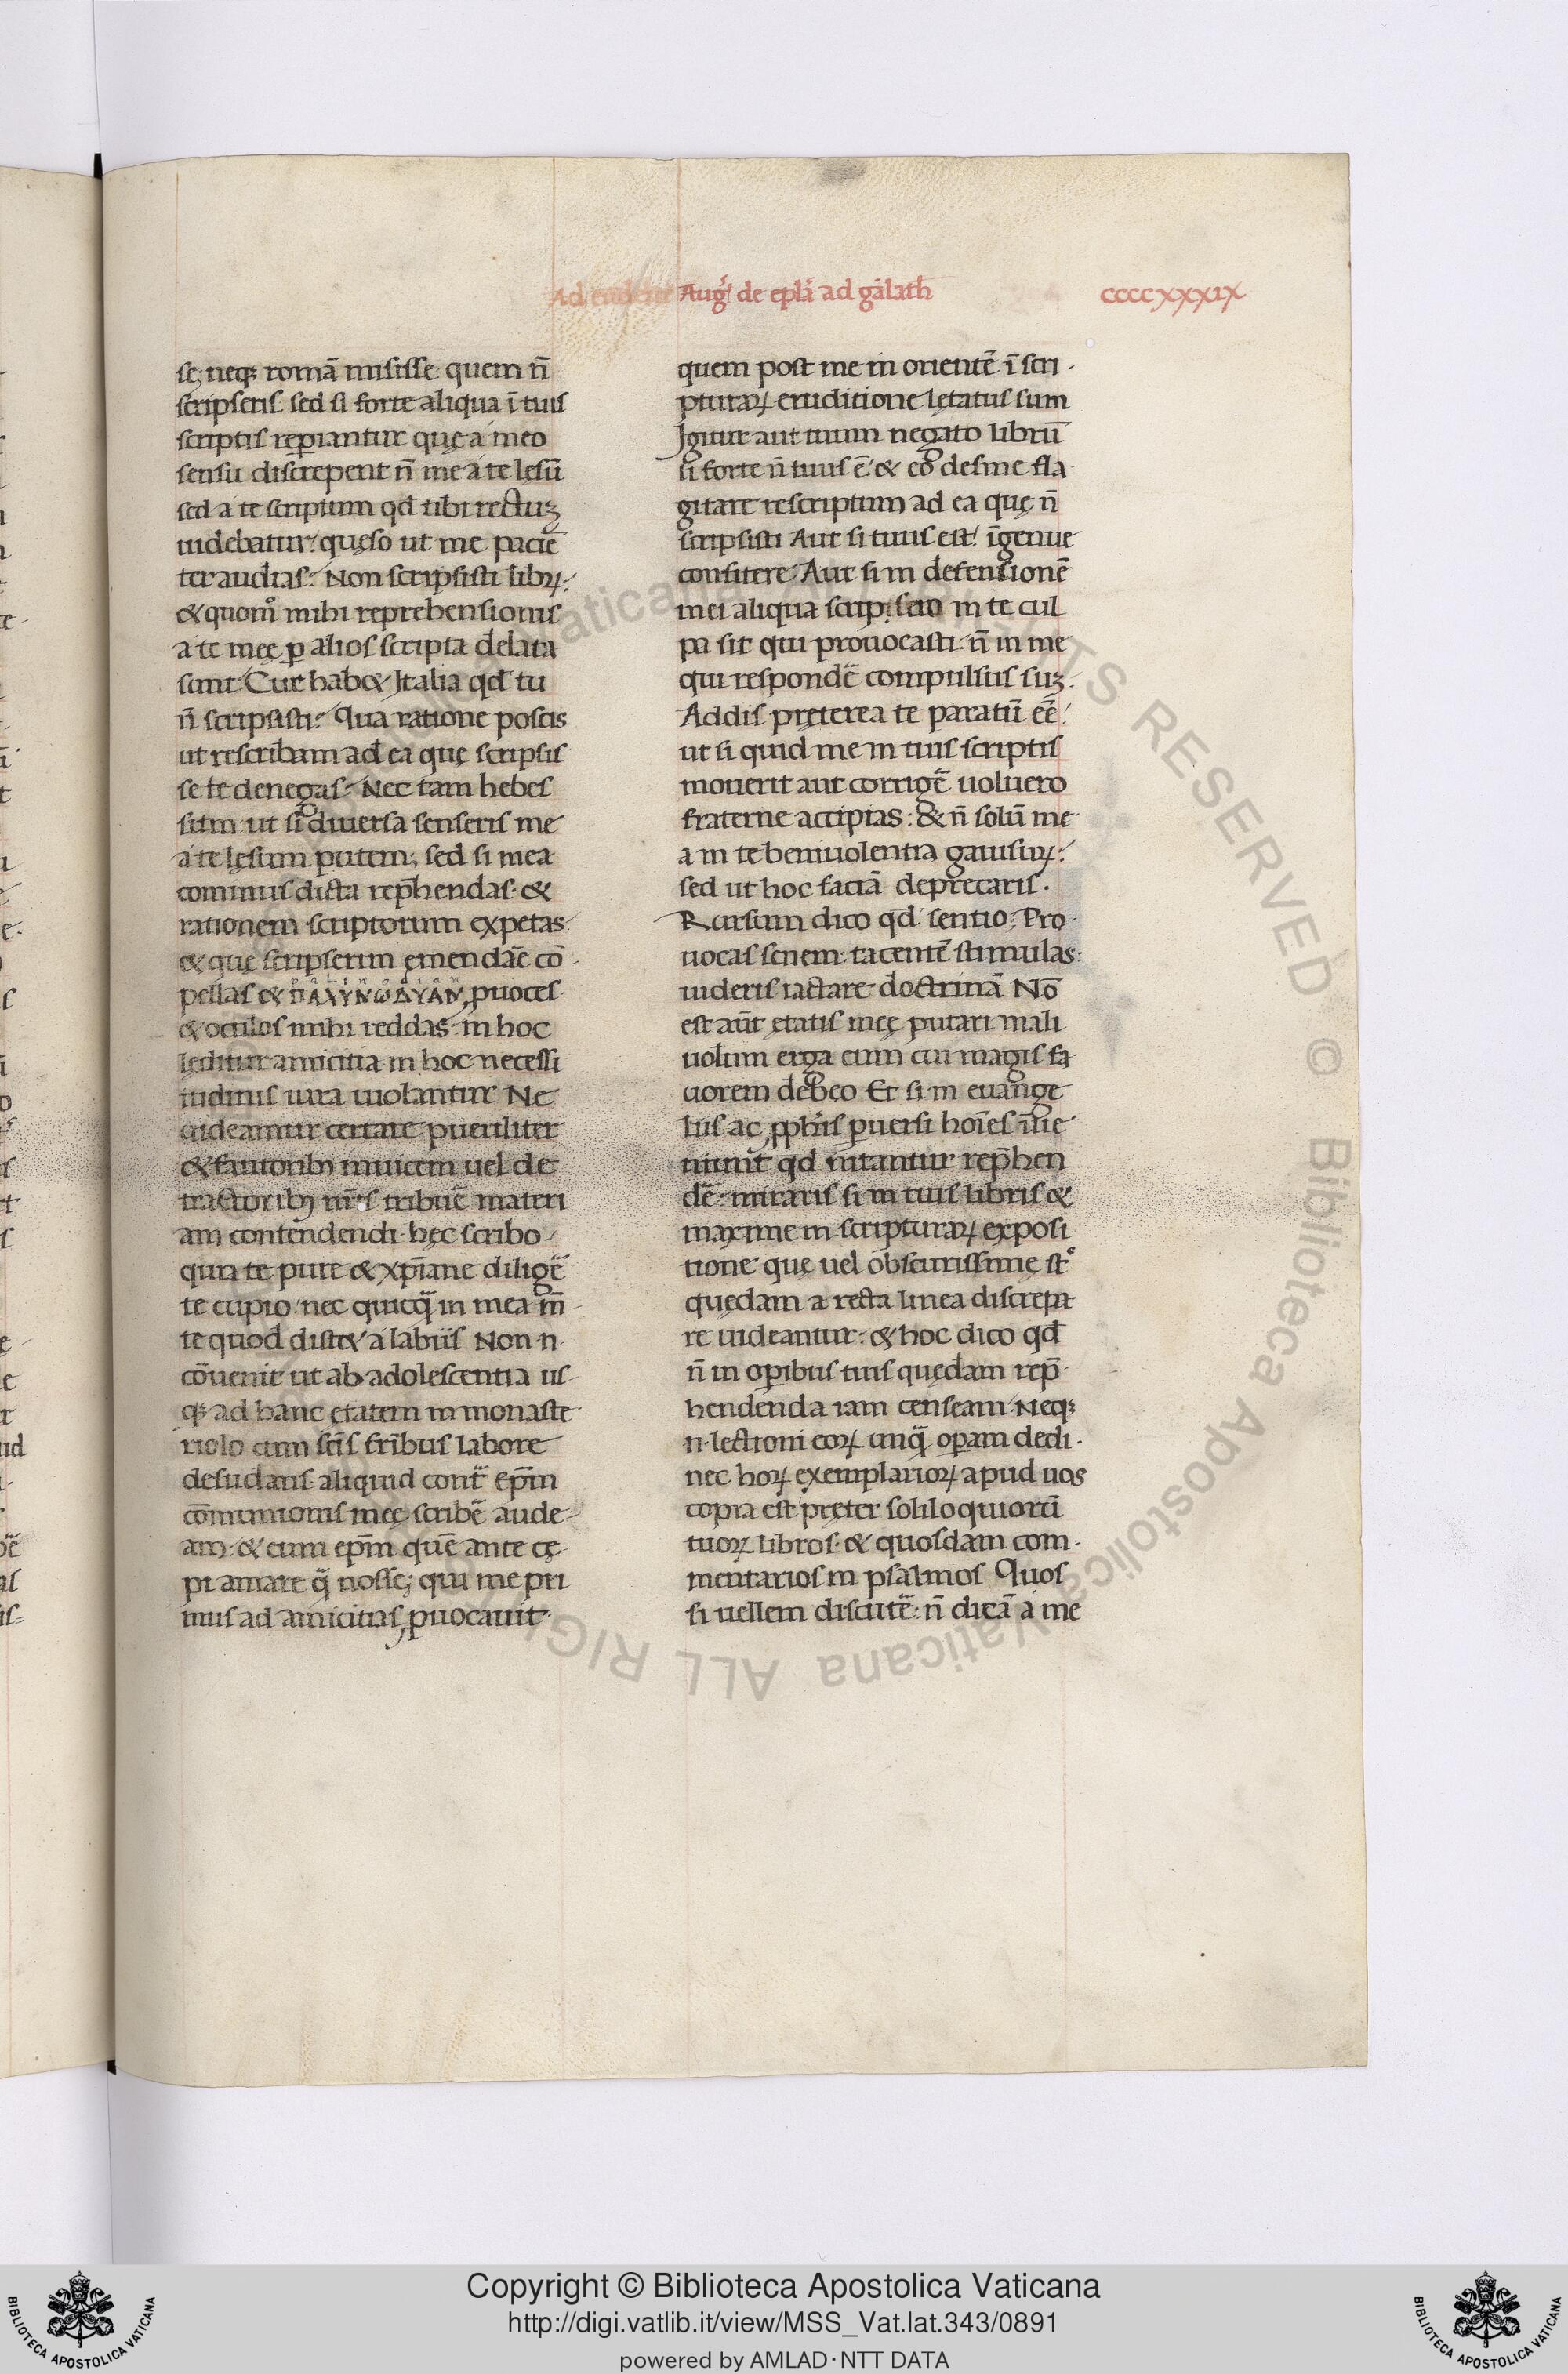 Aug᷒ de epła ad gałath
ccccxxxix
se; neqꝫ romā misisse quem n̄
scripseris sed si forte aliqua ī tuis
scriptis reꝑiantur quę a meo
sensu discrepent n̄ me a te lęsū
sed a te scriptum qđ tibi rectuꝫ
uidebatur quęso ut me paciē
ter audias Non scripsisti libꝝ
& quom̊ mihi reprehensionis
a te meę ꝑ alios scripta delata
sunt Cur hab& Italia qđ tu
n̄ scripsisti Qua ratione poscis
ut rescribam ad ea quę scripsis
se te denegas Nec tam hebes
sum ut si diuersa senseris me
a te lęsum putem; sed si mea
cominus dicta rep̄hendas &
rationem scriptorum expetas
& quę scripserim emendāe cō
pellas & ΠΑλΥΝωΔΥΑΝ ꝓuoces
& oculos mihi reddas in hoc
lęditur amicitia in hoc necessi
tudinis iura uiolantur Ne
uideamur certare pueriliter
& fautoribꝫ inuicem uel de
tractoribꝫ nr̄is tribuē materi
am contendendi hęc scribo
quia te pure & xp̄iane diligē
te cupio nec quicq̄ in mea m̄
te quod dist& a labiis Non n
cōuenit ut ab adolescentia us
qꝫ ad hanc ętatem in monaste
riolo cum sc̄is fr̄ibus labore
desudans aliquid contᷓ ep̄m
cōmunionis meę scribē aude
am & cum ep̄m quē ante cę
pi amare q̄ nosse; qui me pri
mus ad amicitias ꝓuocauit
quem post me in orientē ī scri
pturaꝝ eruditione lętatus sum
Igitur aut tuum negato librū
si forte n̄ tuus ē & eo desine fla
gitare rescriptum ad ea quę n̄
scripsisti Aut si tuus est īgenue
confitere Aut si in defensionē
mei aliqua scripsero in te cul
pa sit qui prouocasti n̄ in me
qui respondē compulsus suꝫ
Addis pręterea te paratū eē
ut si quid me in tuis scriptis
mouerit aut corrigē uoluero
fraterne accipias & n̄ solū me
a in te beniuolentia gauisuꝝ
sed ut hoc faciā deprecaris
Rursum dico qđ sentio Pro
uocas senem tacentē stimulas
uideris iactare doctrinā Nō
est aūt ętatis meę putari mali
uolum erga eum cui magis fa
uorem debeo Et si in euange
liis ac ꝓphīs ꝑuersi hoīes īue
niunt qđ nitantur rep̄hen
dē miraris si in tuis libris &
maxime in scripturaꝝ exposi
tione quę uel obscurissime st̄
quędam a recta linea discrepa
re uideantur & hoc dico qđ
n̄ in oꝑibus tuis quędam rep̄
hendenda iam censeam Neqꝫ
n lectioni eoꝝ unq̄ oꝑam dedi
nec hoꝝ exemplarioꝝ apud uos
copia est pręter soliloquiorū
tuoꝝ libros & quosdam com
mentarios in psalmos Quos
si uellem discutē n̄ dicā a me
Biblioteca Apostolica Vaticana ALL RIGHTS RESERVED ©
Copyright © Biblioteca Apostolica Vaticana
http://digi.vatlib.it/view/MSS_Vat.lat.343/0891
powered by AMLAD·NTT DATA
BIBLIOTECA APOSTOLICA VATICANA
BIBLIOTECA APOSTOLICA VATICANA